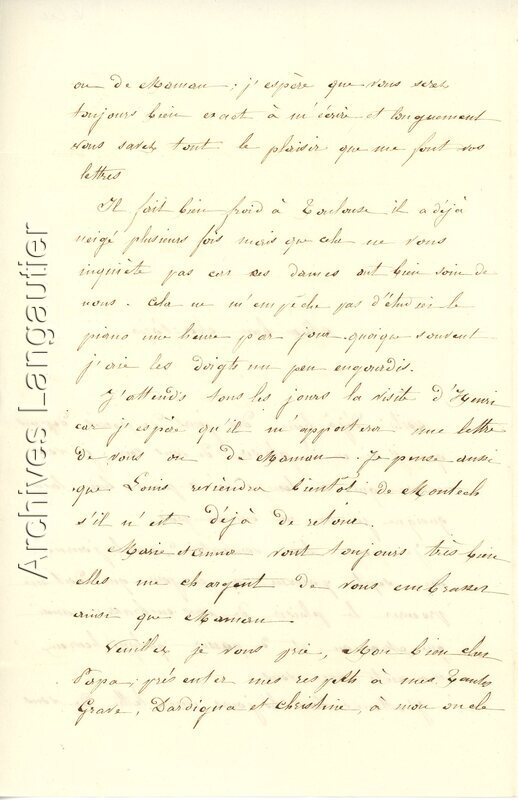 ou de Maman ; j'espère que vous serez
toujours bien exact à m'écrire et longuement
vous savez tout le plaisir que me font vos
lettres
Il fait bien froid à Toulouse il a déjà
neigé plusieurs fois mais que cela ne vous
inquiète pas car ces dames ont bien soin de
nous. Cela ne m'empêche pas d'étudier le
piano une heure par jour quoique souvent
j'aie les doigts un peu engourdis.
J'attends tous les jours la visite d'Henri
car j'espère qu'il m'apportera une lettre
de vous ou de Maman. Je pense aussi
que Louis reviendra bientôt de Montech
s'il n'est déjà de retour.
Marie et Anna vont toujours très bien
elles me chargent de vous embrasser
ainsi que Maman
Veuillez je vous prie, Mon bien cher
Papa, présenter mes respects à mes Tantes
Grave, Dardigna et Christine, à mon oncle
Archives Langautier